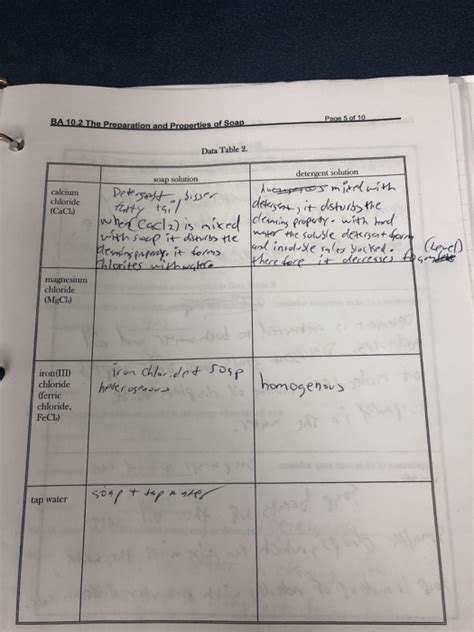 BA 10.2 The Preparation and Properties of Soap
Page 5 of 10
Data Table 2.
soap solution
detergent solution
calcium
chloride
(CaCl₂)
Detergent
fatty tail
when (CaCl2) is mixed
with soap it disturbs the
cleaning property. it forms
with water
mixed with
detergent, it disturbs the
cleaning property. with hard
water the soluble detergent
and insoluble
therefore it decreases
magnesium
chloride
(MgCl₂)
iron(III)
chloride
(ferric
chloride,
FeCl₃)
iron chloride + soap
heterogenous
homogenous
tap water
soap + tap water